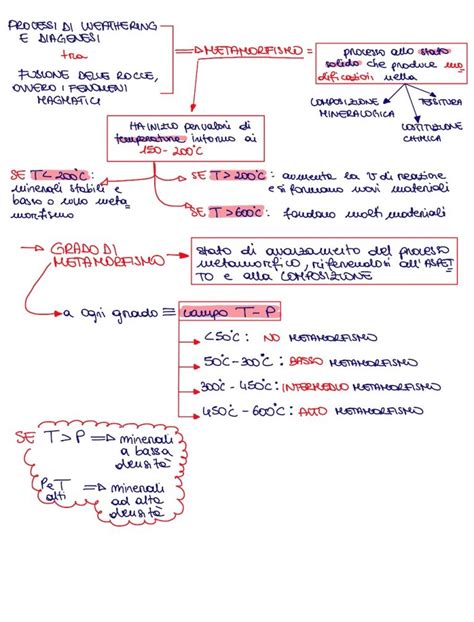 PROCESSI DI WEATHERING
E DIAGENESI
tra
FUSIONE DELLE ROCCE,
OVVERO I FENOMENI
MAGMATICI
= METAMORFISMO =
processo allo stato
solido che produce mo
dificazioni nella
COMPOSIZIONE
MINERALOGICA
TESSITURA
COSTITUZIONE
CHIMICA
HA INIZIO per valori di
temperatura intorno ai
150-200°C
SE T<200°C:
minerali stabili e
basso o nullo meta
morfismo
SE T>200°C: aumenta la V di reazione
e si formano nuovi materiali
SE T>600°C: fondono molti materiali
GRADO DI
METAMORFISMO
stato di avanzamento del processo
metamorfico, riferendosi all'ASPET
TO e alla COMPOSIZIONE
a ogni grado ≡ campo T-P
<50°C: NO METAMORFISMO
50°C-300°C: BASSO METAMORFISMO
300°C-450°C: INTERMEDIO METAMORFISMO
450°C-600°C: ALTO METAMORFISMO
SE T>P ⇒ minerali
a bassa
densità
P e T
alti
⇒ minerali
ad alta
densità